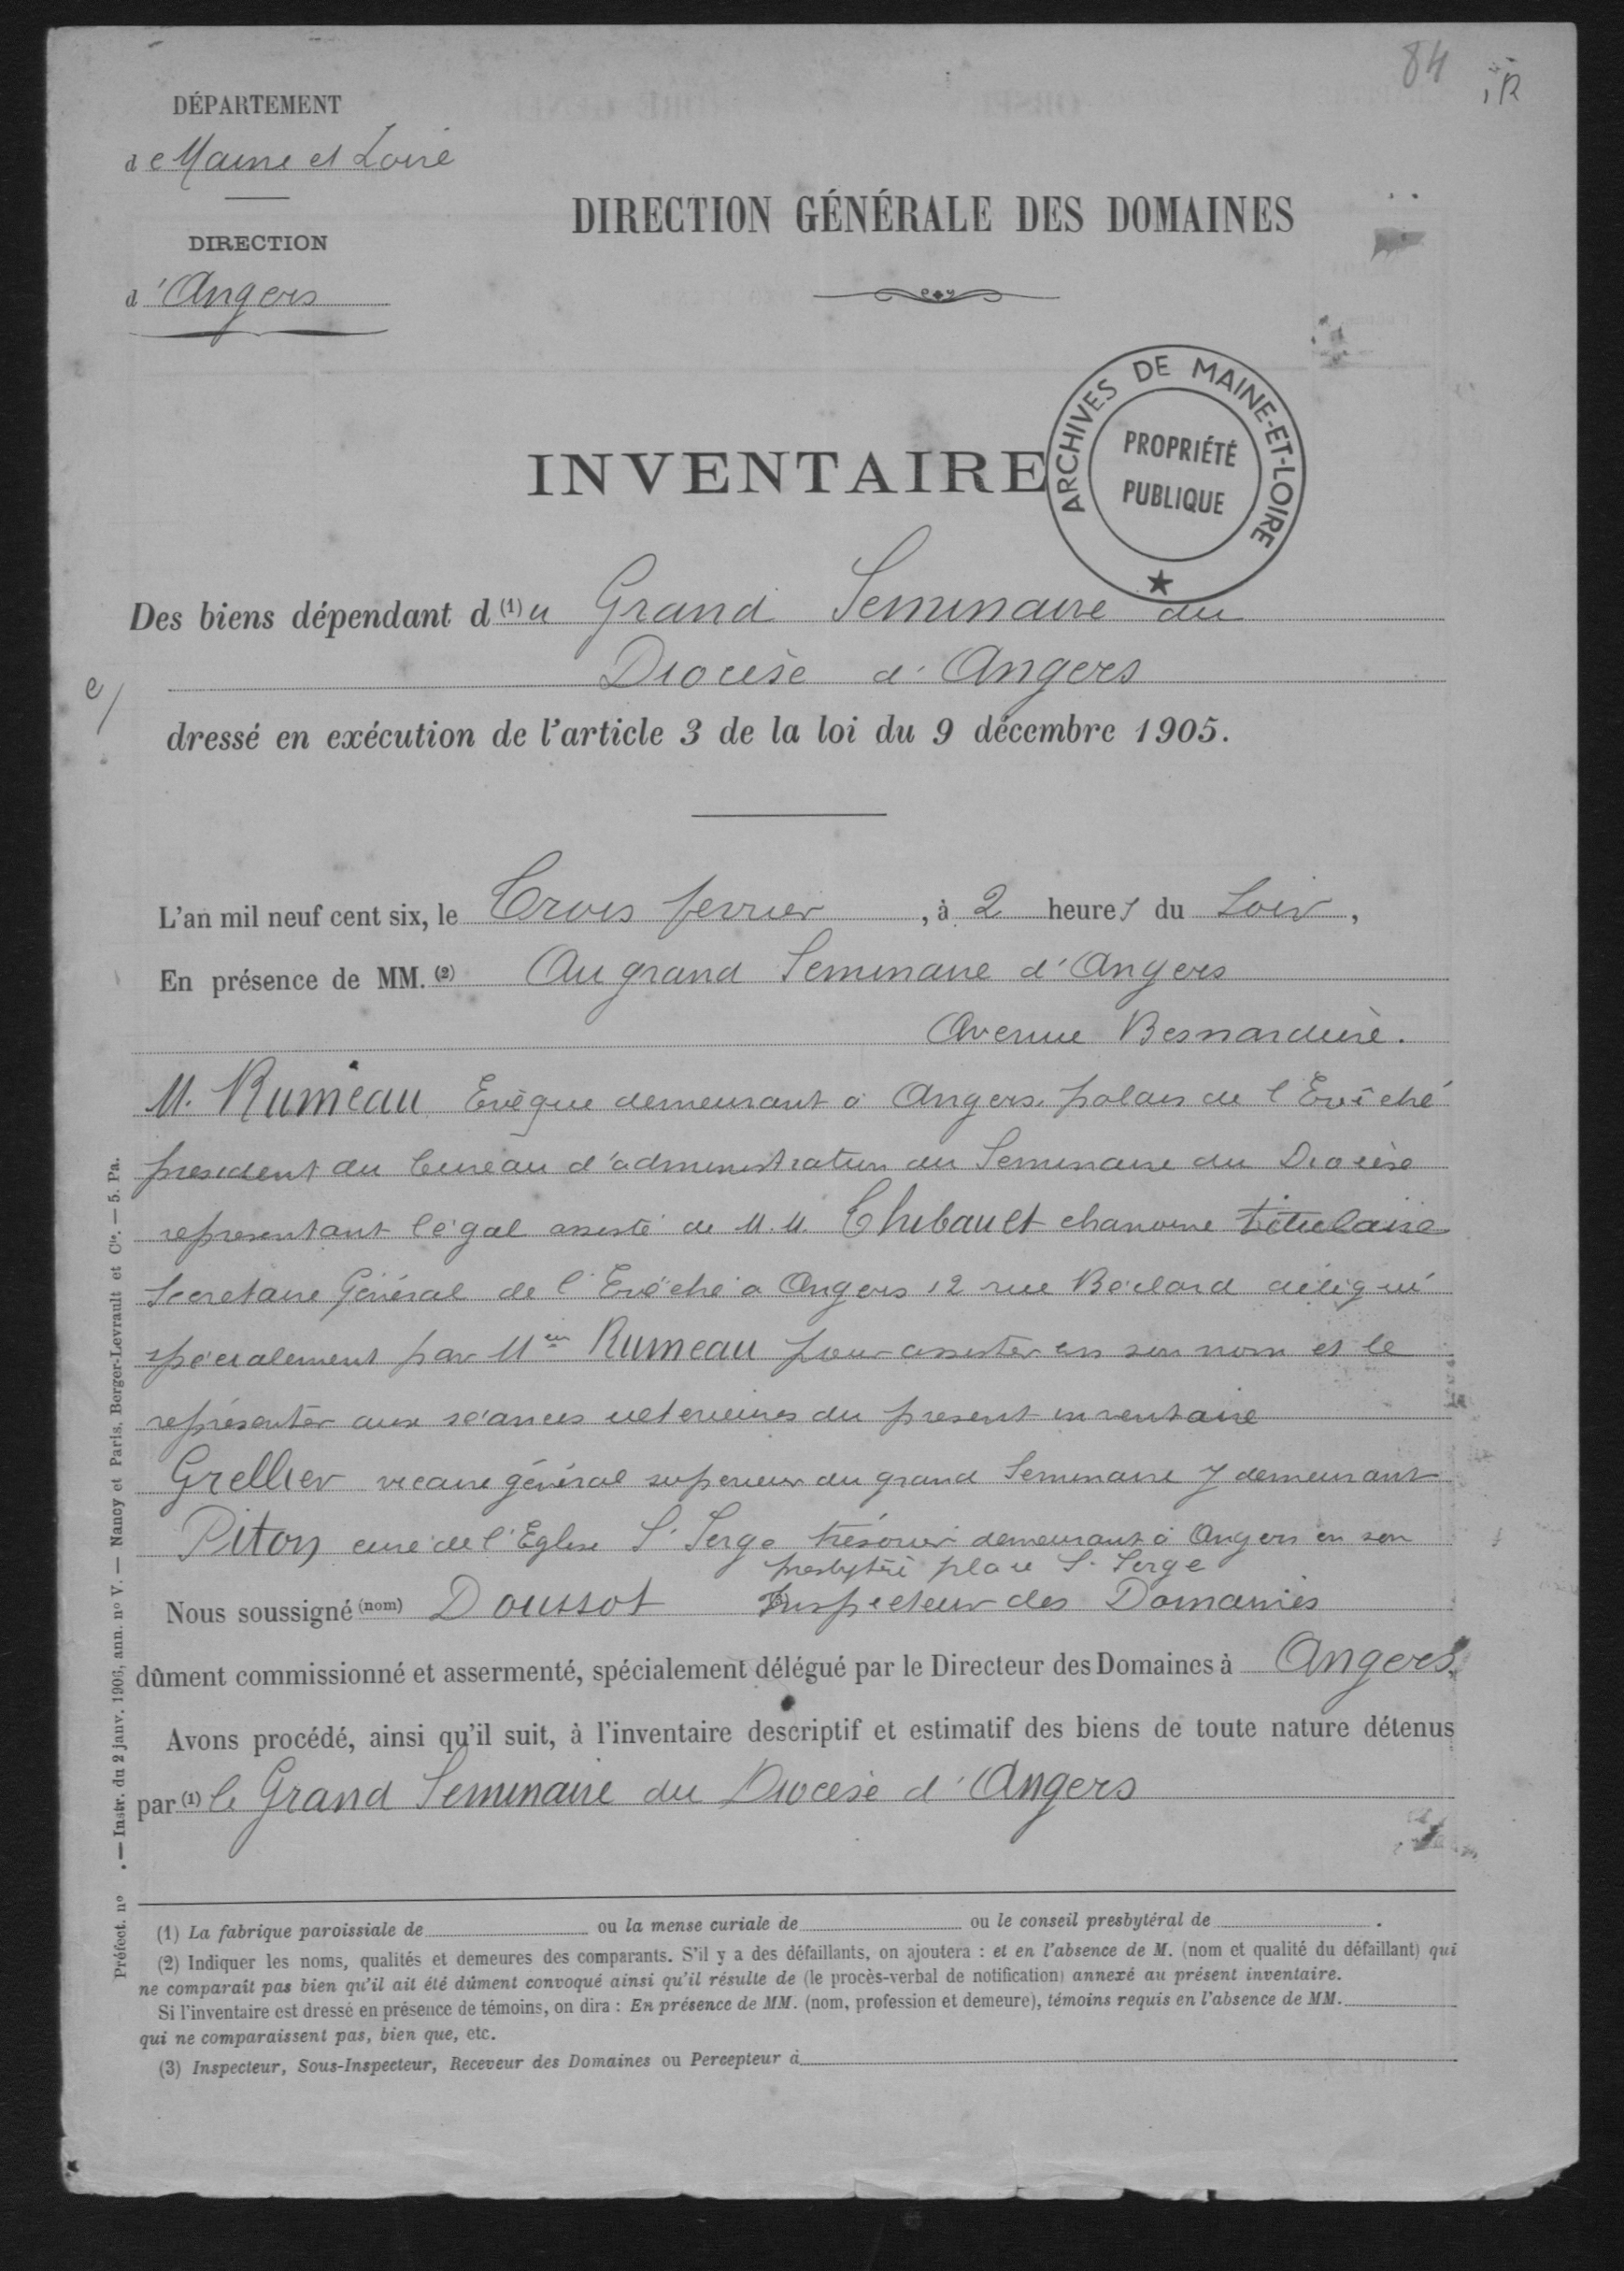 84
DÉPARTEMENT
de Maine et Loire
DIRECTION
d'Angers
DIRECTION GÉNÉRALE DES DOMAINES
INVENTAIRE
ARCHIVES DE MAINE-ET-LOIRE
PROPRIÉTÉ
PUBLIQUE
Des biens dépendant d(1)u Grand Seminaire du
Diocèse d'Angers
dressé en exécution de l'article 3 de la loi du 9 décembre 1905.
L'an mil neuf cent six, le Trois fevrier, à 2 heures du Soir,
En présence de MM. (2) Au grand Seminaire d'Angers
Avenue Besnardière.
M. Rumeau Evêque demeurant à Angers palais de l'Evêché
president du bureau d'administration du Seminaire du Diocèse
representant légal assisté de M.M. Thibault chanoine titulaire
Secretaire Général de l'Evêché à Angers 12 rue Béclard délégué
spécialement par Mgr Rumeau pour assister en son nom et le
représenter aux séances ulterieures du present inventaire
Grellier vicaire général superieur du grand Seminaire y demeurant
Piton curé de l'Eglise St Serge trésorier demeurant à Angers en son
presbytère place St Serge
Nous soussigné (nom) Doussot Inspecteur des Domaines
dûment commissionné et assermenté, spécialement délégué par le Directeur des Domaines à Angers.
Avons procédé, ainsi qu'il suit, à l'inventaire descriptif et estimatif des biens de toute nature détenus
par (1) le Grand Seminaire du Diocèse d'Angers
(1) La fabrique paroissiale de ou la mense curiale de ou le conseil presbytéral de .
(2) Indiquer les noms, qualités et demeures des comparants. S'il y a des défaillants, on ajoutera : et en l'absence de M. (nom et qualité du défaillant) qui
ne comparaît pas bien qu'il ait été dûment convoqué ainsi qu'il résulte de (le procès-verbal de notification) annexé au présent inventaire.
Si l'inventaire est dressé en présence de témoins, on dira : En présence de MM. (nom, profession et demeure), témoins requis en l'absence de MM.
qui ne comparaissent pas, bien que, etc.
(3) Inspecteur, Sous-Inspecteur, Receveur des Domaines ou Percepteur à
Préfect. nº . — Instr. du 2 janv. 1906, ann. nº V. — Nancy et Paris, Berger-Levrault et Cie. — 5. Pa.